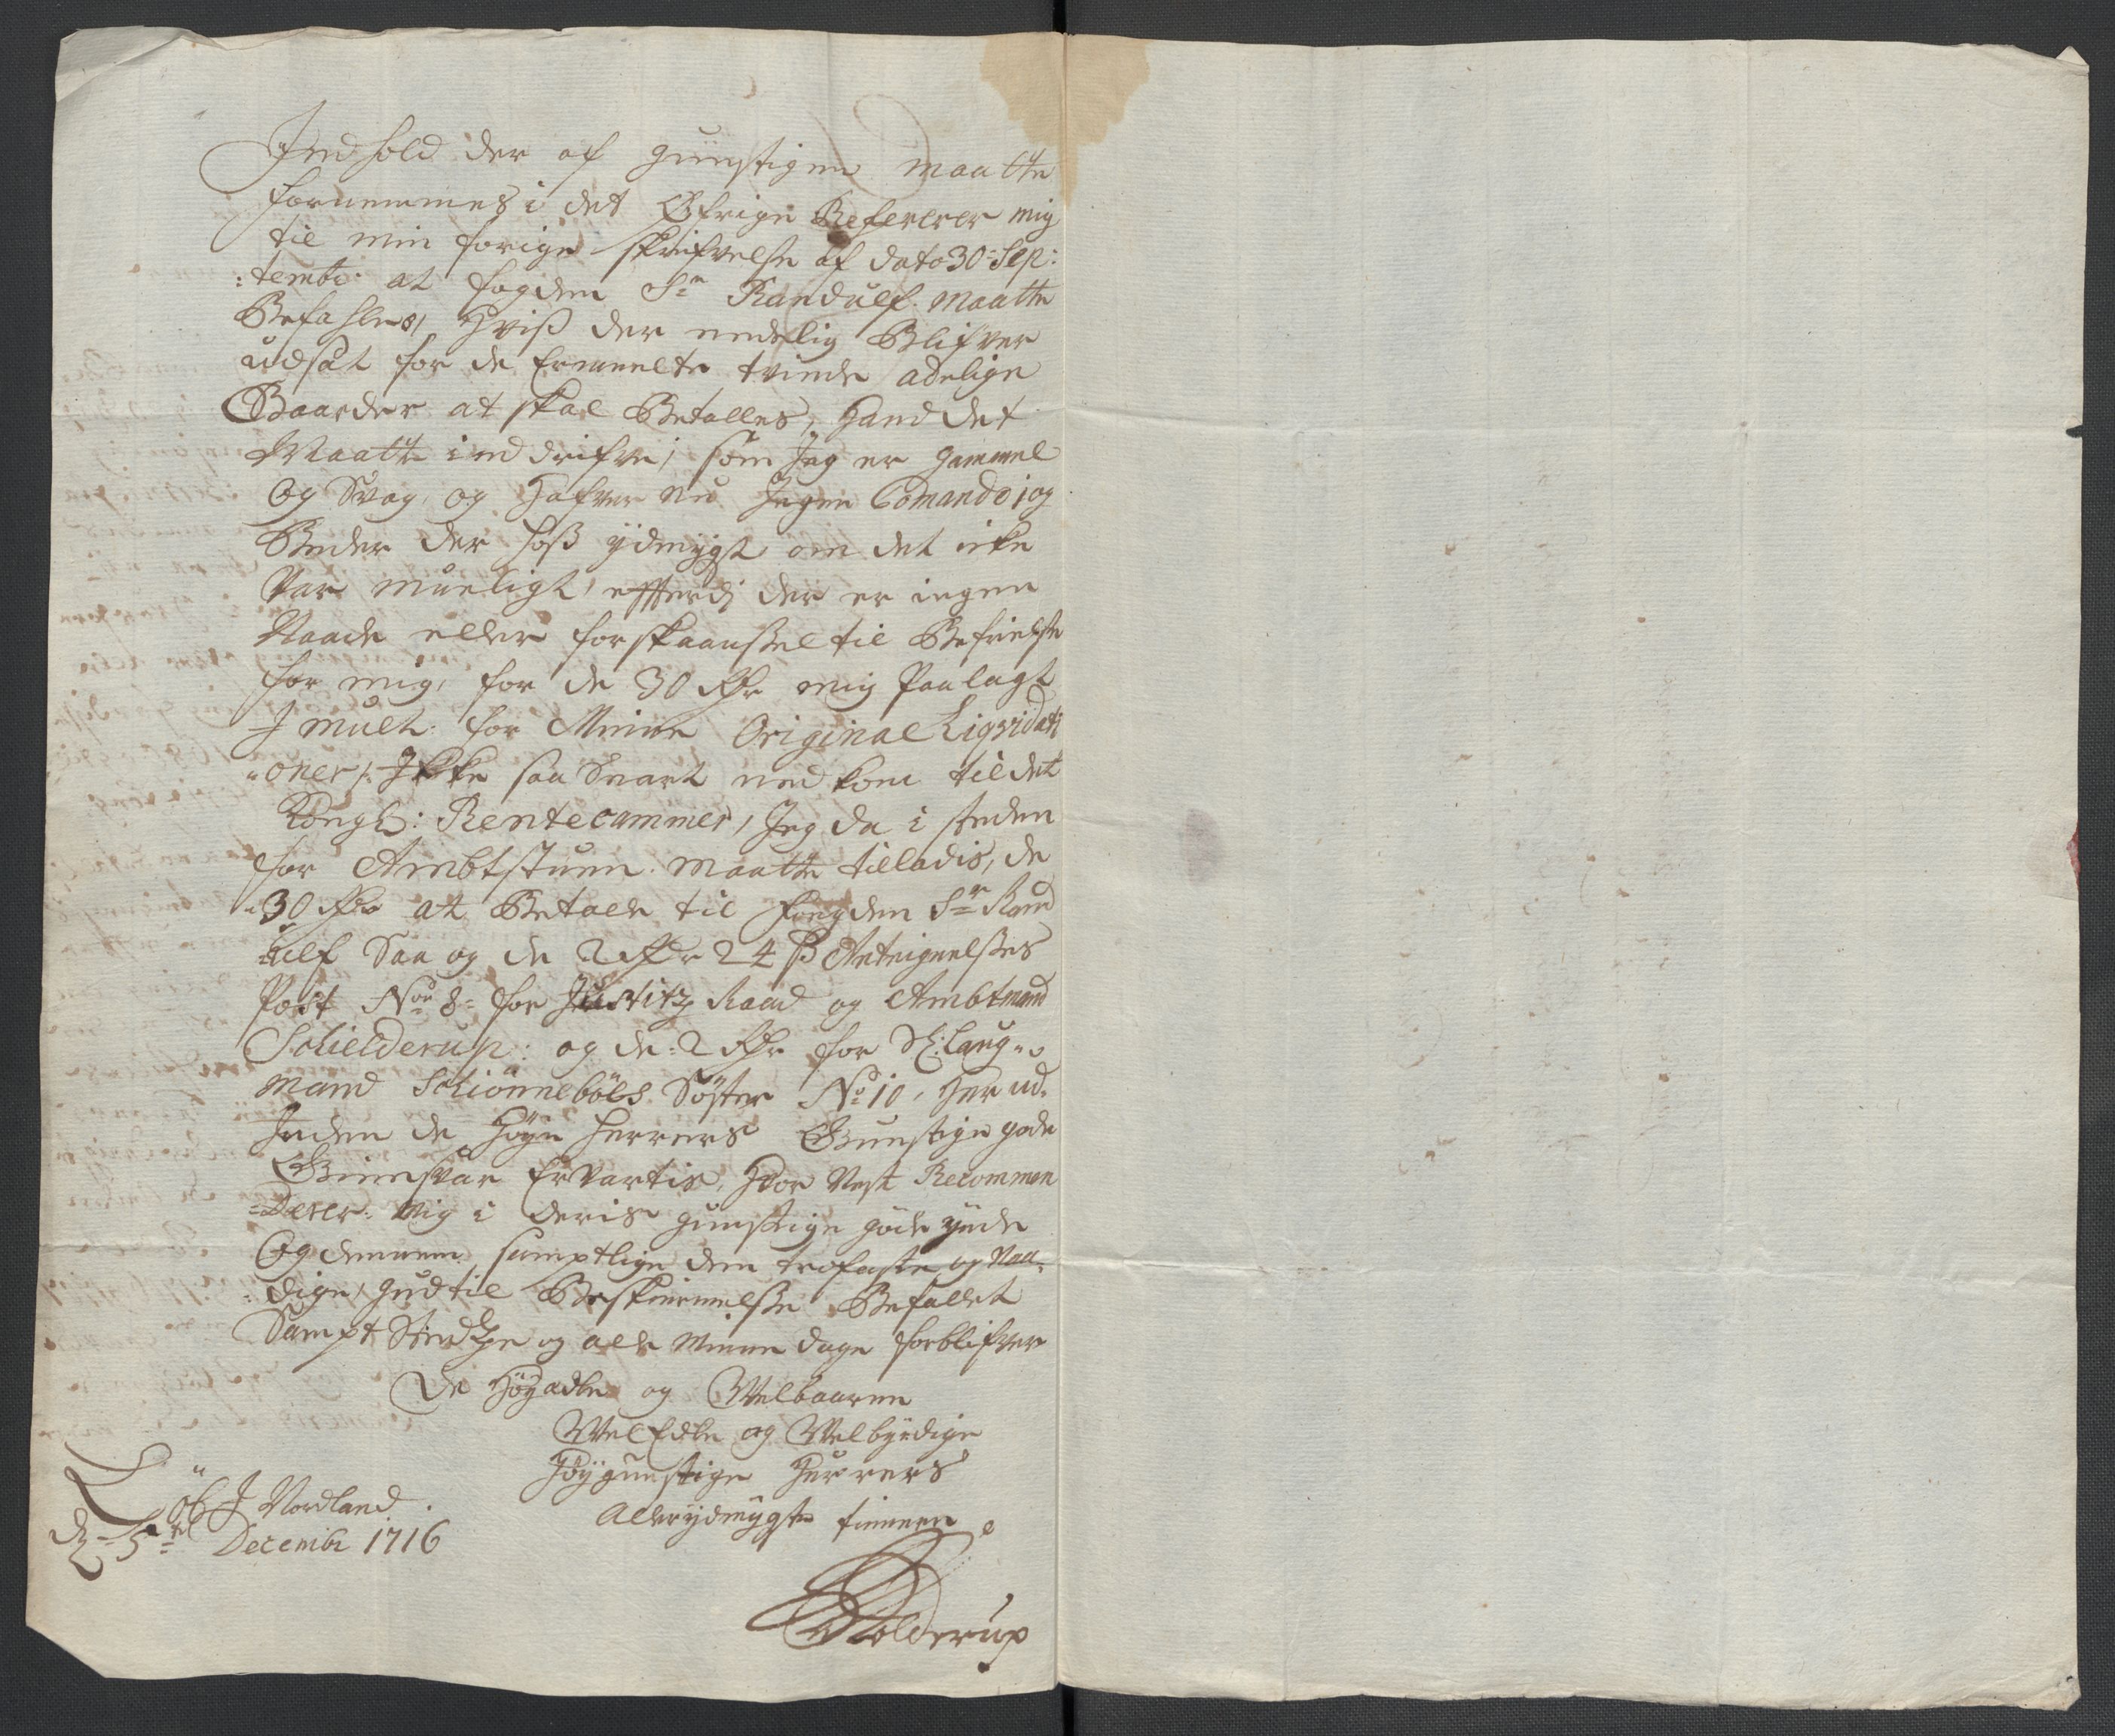 Indhold der af gunstigen maatte
fornemmes i det Øfrige Refererer mig
til min forige skrifvelse af dato 30 Sep:
:tembr: at fogden Sr Randulf maatte
Befahles, Hviß der endelig Blifver
udsat for de Ermeelte tvinde adelige
Gaarder at skal Betalles, Hand det
Maatte inddrifve, som Jeg er gammel
Og Svag, og Hafver nu Ingen Comando, og
Beder der hoß ydmygst om det icke
Var mueligt, effterdj der er ingen
Naade eller forskaanßel til Befrielse
for mig, for de 30 Rdr mig Paalagt
I mult: for Minne Original Liqvidati
oner /: Ikke saa Snart nedkom til det
Kongl: Rentecammer, Jeg da i steden
for Ambtstuen maatte tilladis, de
30 Rdr at Betale til fougden Sr Rand
ulf Saa og de 2 Rdr 24 ß Anteignelßes
Post No 8 for Justitz Raad og Ambtmand
Schielderup: og de 2 Rdr for Sl: Laug
mand Schiønnebøls Søster No 10, Her ud
Inden de Høye Herrers Gunstige gode
Giensvar Ervartis, Hvor Nest Recommen
=Derer mig i deris gunstige gode ynde
Og dennem samptlige den trofaste og Naa
:dige, Gud til Beskiermelße Befallet
Sampt Stedtze og alle Minne dage forblifver
De Høyædle og Welbaarne
WelEdle og Welbyrdige
Høygunstige Herrers
Allerydmygste tienner
Tolderup
I Nordland
d 5te Decembr 1716